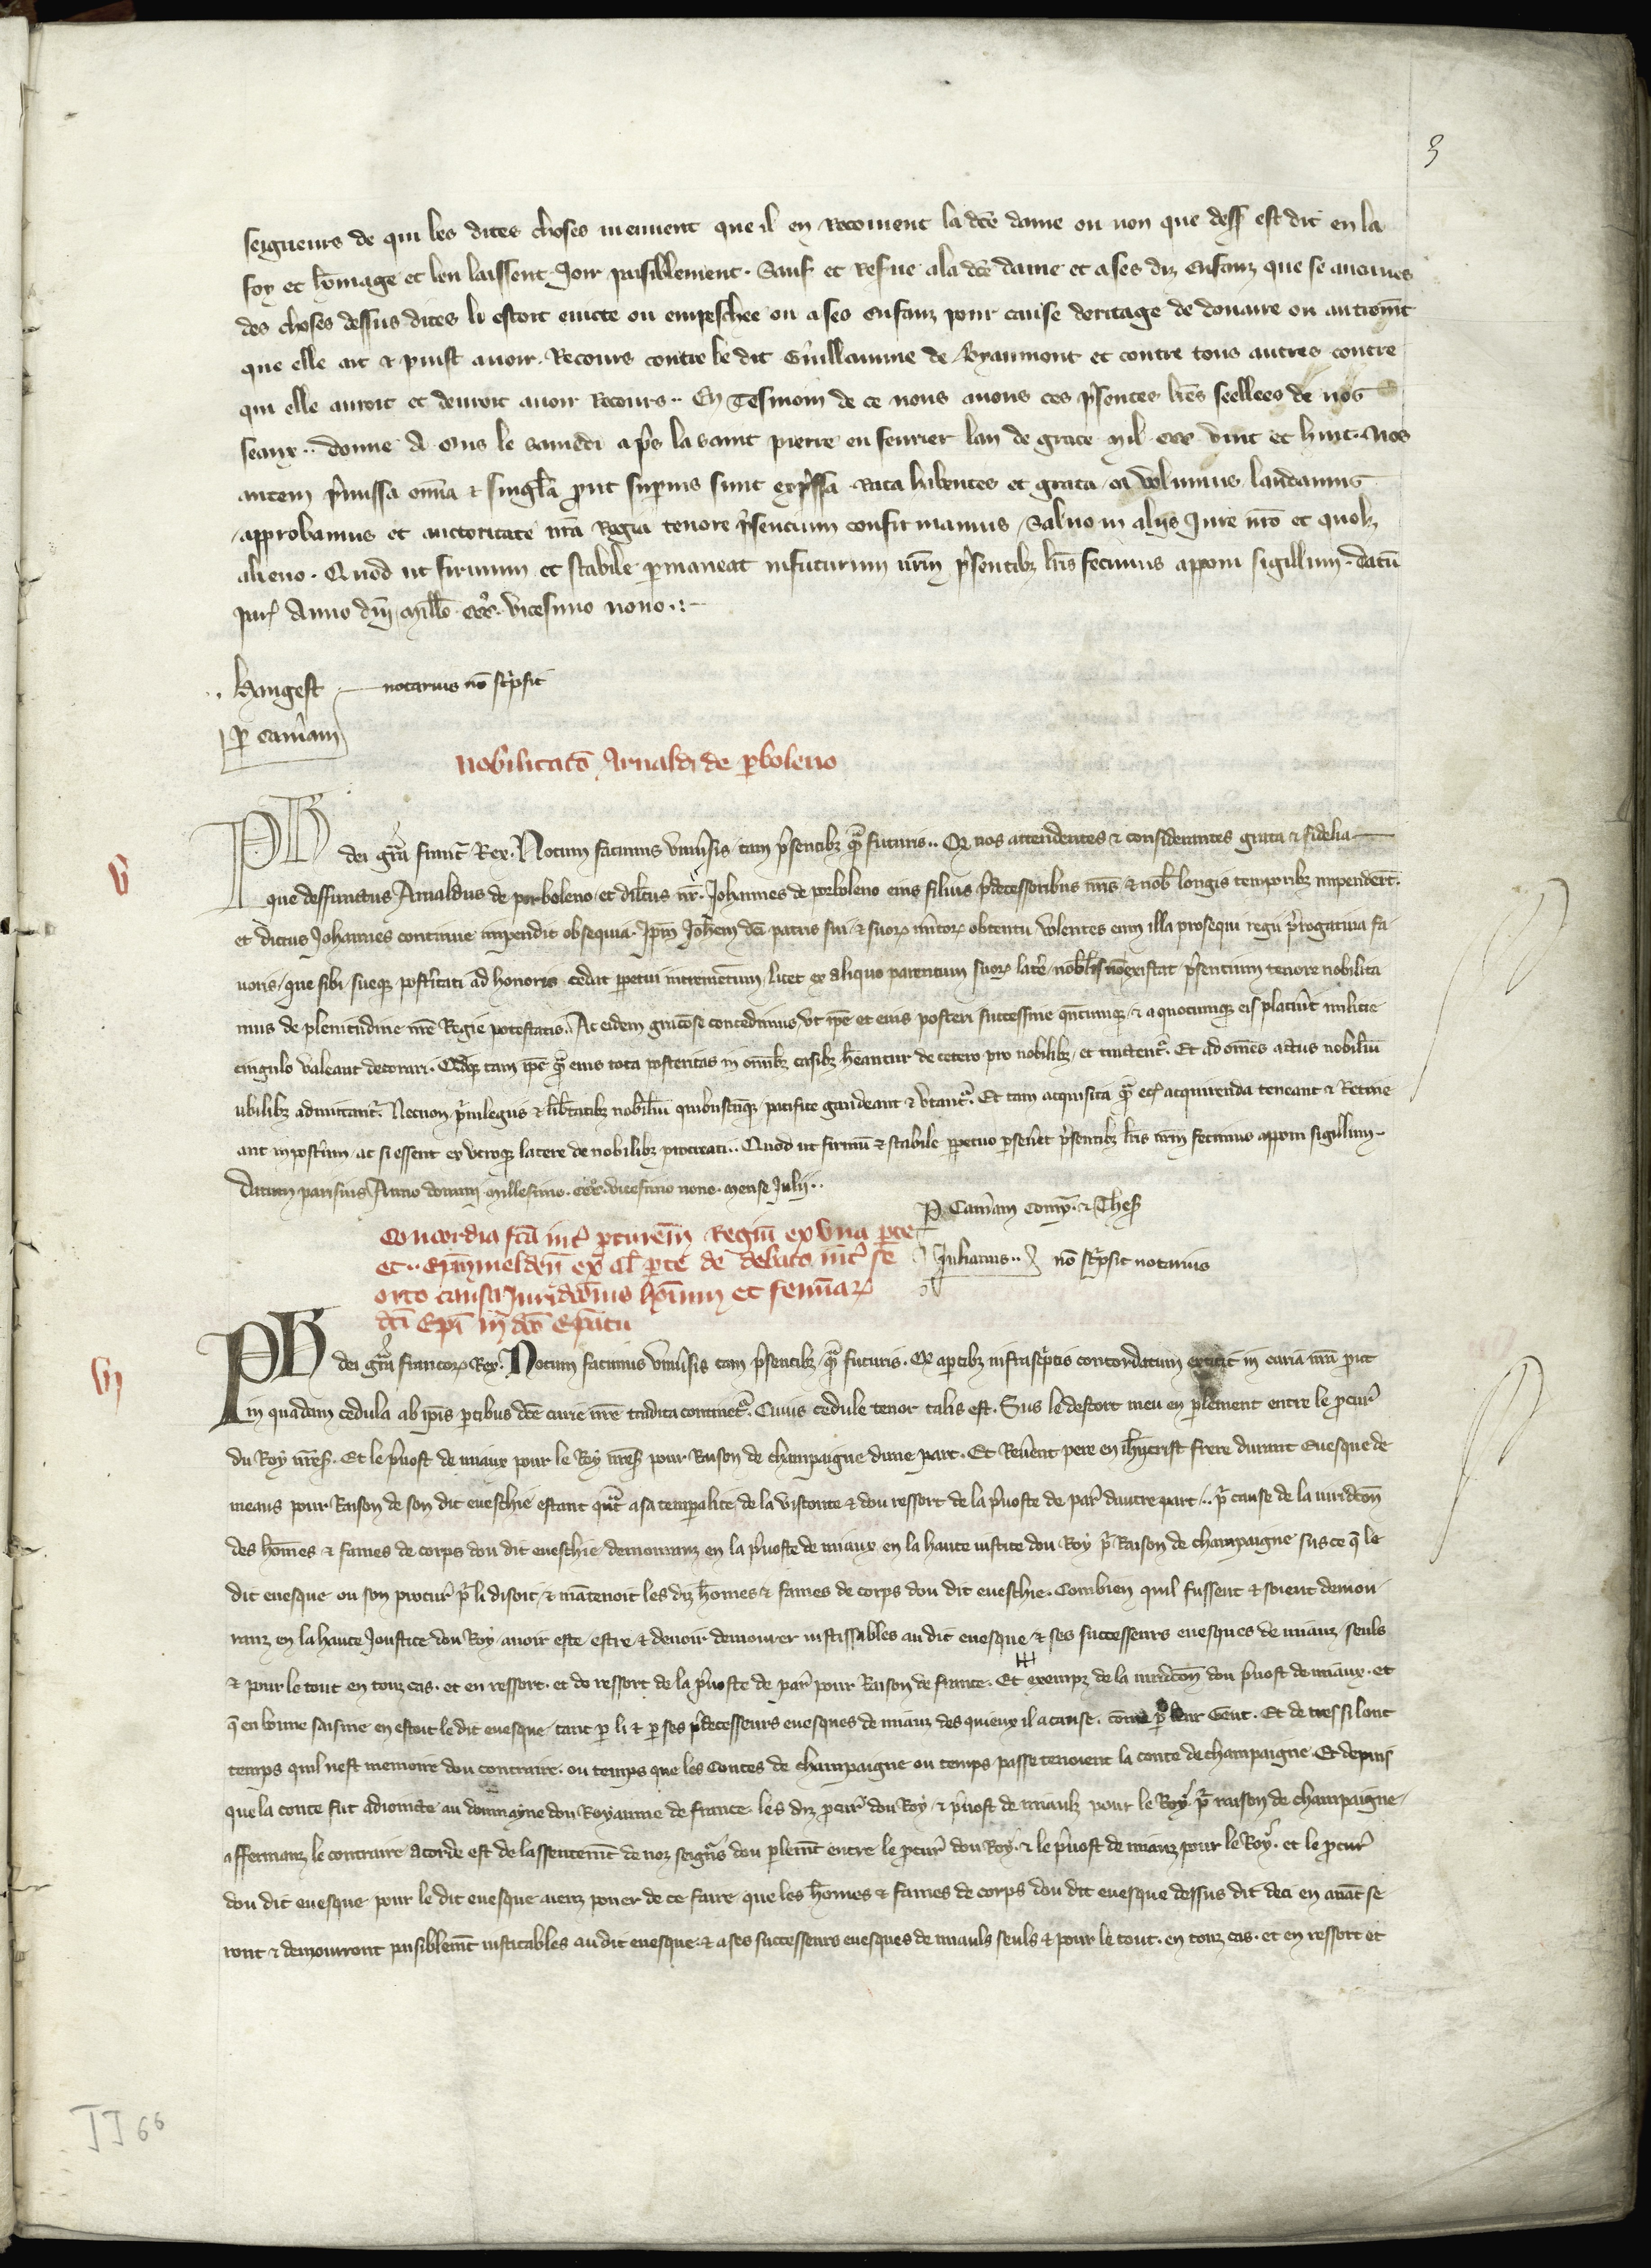 3
seigneurs de qui les dites choses meuuent que il en Recoiuent la dce dame ou non que dess est dit en la
foy et homage et len laissent Joir paisiblement. Sauf et Resue a la dce dame et a ses diz enfanz que se aucunes
des choses dessus dites li estoit euicte ou empeschee ou a ses enfanz pour cause deritage de douaire ou autremt
que elle ait & puist auoir Recours contre le dit Guillaume de Byaumont et contre tous autres contre
qui elle auroit et deuroit auoir Recours.. En Tesmoin de ce nous auons ces psentes lres seellees de nos
seaux.. donne A Ons le samedi aps la saint pierre en feurier lan de grace mil ccc vint et huit. Nos
autem pmissa omia & singla put supius sunt expssa Rata habentes et grata ea volumus laudamus
approbamus et auctoritate nra Regia tenore psencium confirmamus Saluo in alijs Jure nro et quolz
alieno. Quod ut firmum et stabile pmaneat infuturum nrm psentibz lris fecimus apponi sigillum. datu
par Anno dni millo ccco. vicesimo nono.
.. hangest notarius no scpsit
P camam
Nobilitaco Arnaldi de pboleno
V
PH dei gra franc Rex. Notum facimus vniusis tam psentibz qm futuris.. Q nos attendentes & considerantes grata & fidelia
que deffunctus Arnaldus de porboleno et dilctus nr Johannes de porboleno eius filius pdecessoribus nris & nob longis temporibz impendert.
et dictus Johannes continue impendit obsequia. Ipm Johem dci patris sui & suor mitor obtentu volentes eum illa prosequi regii progatiua fa
uoris que sibi sueqz postitati ad honoris cedat ppetui incrementum licet ex aliquo parentum suor late nobilis no existat psentium tenore nobilita
mus de plenitudine nre Regie potestatis. Ac eidem graciose concedimus vt ipe et eius posteri successiue qncunqz & a quocunqz eis placuit milicie
cingulo valeant decorari. Q tam ipe qm eius tota posteritas in omibz casibz heantur de cetero pro nobilibz et tractent. Et ad omes actus nobiliu
ubilibz admittant. Necnon priuilegiis & libtatibz nobiliu quibuscuqz pacifice gaudeant & vtant. Et tam acquisita qm eci acquirenda teneant & Retine
ant inposterum ac si essent ex vtroqz latere de nobilibz procreati.. Quod ut firmu & stabile ppetuo pseuet psentibz lris nrm fecimus apponi sigillum.
Datum parisius Anno domini millesimo. ccco. vicesimo nono. mense Julij..
P Camam Comp. & Thes
Julianus.. no scpsit notarius
Concordia fca int pcurem Regiu ex vna pte
et.. epm melden ex al pte de debato int se
orto causa Juridcois hoium et feminar
dci Epi in dco Epatu
VI
PH dei gra francor Rex. Notum facimus vniusis tam psentibz qm futuris. Q a ptibz infrascptis concordatum extitit in curia nra put
in quadam cedula ab ipis ptibus dce curie nre tradita continet. Cuius cedule tenor talis est. Sus le descort meu en plement entre le pcur
du Roy nres. Et le puost de miaux pour le Roy nres pour Raison de champaigne dune part. Et Reuent pere en ihucrist frere durant Euesque de
meaus pour Raison de son dit eueschie estant qnt a sa temporalite de la visconte & dou ressort de la puoste de par dautre part.. p cause de la iuridcon
des homes & fames de corps dou dit eueschie demouranz en la puoste de miaux en la haute iustice dou Roy p Raison de champaigne sus ce q le
dit euesque ou son procur p li disoit & maintenoit les diz homes & fames de corps dou dit eueschie. Combien quil fussent & soient demou
ranz en la haute Joustice dou Roy auoir este estre & deuoir demourer iustissables au dit euesque & ses successeurs euesques de miaux seuls
& pour le tout en touz cas. et en ressort. et do ressort de la puoste de par pour Raison de france. Et exempz de la iuridcon dou puost de miaux. et
q en bonne saisine en estoit le dit euesque tant p li & p ses pdecesseurs euesques de miauz des quieux il a cause. come p leur Gent. Et de tres si lont
temps quil nest memoire dou contraire. ou temps que les Contes de champaigne ou temps passe tenoient la conte de champaigne Et depuis
que la conte fut adiointe au dommayne dou Royaume de france. les diz pcur dou Roy & puost de miaulz pour le Roy p raison de champaigne
affermanz le contraire acorde est de lassentemt de noz seigns dou plemt entre le pcur dou Roy. & le puost de miauz pour le Roy. et le pcur
dou dit euesque pour le dit euesque aienz pouer de ce faire que les homes & fames de corps dou dit euesque dessus dit deci en auat se
ront & demourront paisiblemt iusticables au dit euesque. & a ses successeurs euesques de miauls seuls & pour le tout. en touz cas. et en ressort et
JJ 66